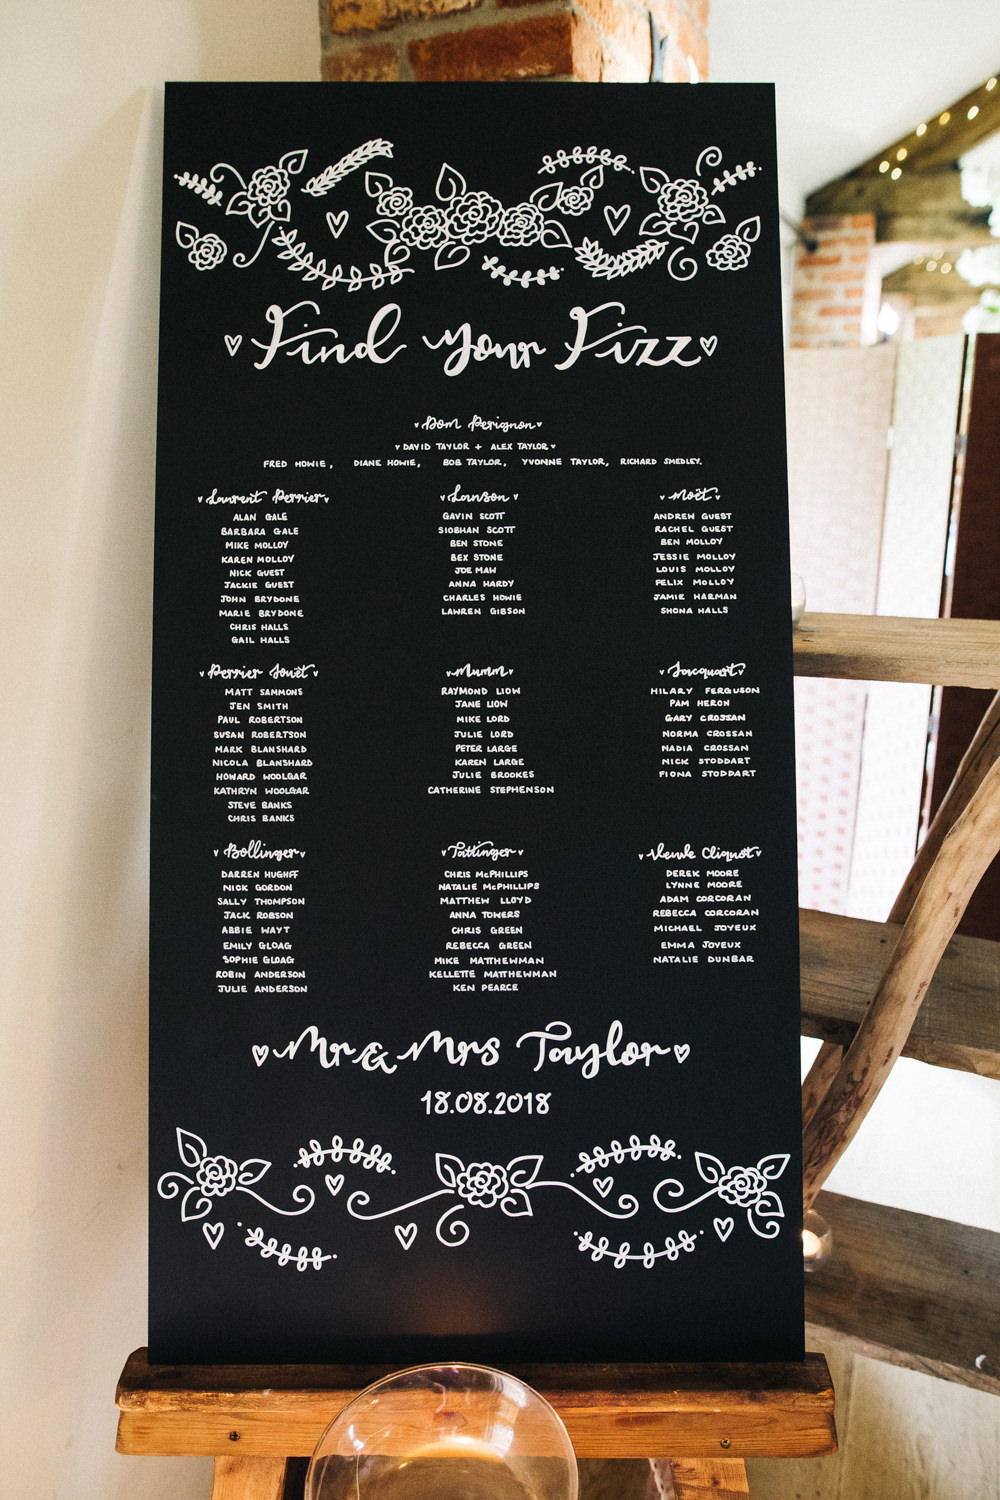 Find your Fizz
Dom Perignon
DAVID TAYLOR + ALEX TAYLOR
FRED HOWIE, DIANE HOWIE, BOB TAYLOR, YVONNE TAYLOR, RICHARD SMEDLEY.
Laurent Perrier
ALAN GALE
BARBARA GALE
MIKE MOLLOY
KAREN MOLLOY
NICK GUEST
JACKIE GUEST
JOHN BRYDONE
MARIE BRYDONE
CHRIS HALLS
GAIL HALLS
Lanson
GAVIN SCOTT
SIOBHAN SCOTT
BEN STONE
BEX STONE
JOE MAW
ANNA HARDY
CHARLES HOWIE
LAWREN GIBSON
Moët
ANDREW GUEST
RACHEL GUEST
BEN MOLLOY
JESSIE MOLLOY
LOUIS MOLLOY
FELIX MOLLOY
JAMIE HARMAN
SHONA HALLS
Perrier Jouët
MATT SAMMONS
JEN SMITH
PAUL ROBERTSON
SUSAN ROBERTSON
MARK BLANSHARD
NICOLA BLANSHARD
HOWARD WOOLGAR
KATHRYN WOOLGAR
STEVE BANKS
CHRIS BANKS
Mumm
RAYMOND LIOW
JANE LIOW
MIKE LORD
JULIE LORD
PETER LARGE
KAREN LARGE
JULIE BROOKES
CATHERINE STEPHENSON
Jacquart
HILARY FERGUSON
PAM HERON
GARY CROSSAN
NORMA CROSSAN
NADIA CROSSAN
NICK STODDART
FIONA STODDART
Bollinger
DARREN HUGHFF
NICK GORDON
SALLY THOMPSON
JACK ROBSON
ABBIE WAYT
EMILY GLOAG
SOPHIE GLOAG
ROBIN ANDERSON
JULIE ANDERSON
Tattinger
CHRIS McPHILLIPS
NATALIE McPHILLIPS
MATTHEW LLOYD
ANNA TOWERS
CHRIS GREEN
REBECCA GREEN
MIKE MATTHEWMAN
KELLETTE MATTHEWMAN
KEN PEARCE
Veuve Cliquot
DEREK MOORE
LYNNE MOORE
ADAM CORCORAN
REBECCA CORCORAN
MICHAEL JOYEUX
EMMA JOYEUX
NATALIE DUNBAR
Mr & Mrs Taylor
18.08.2018